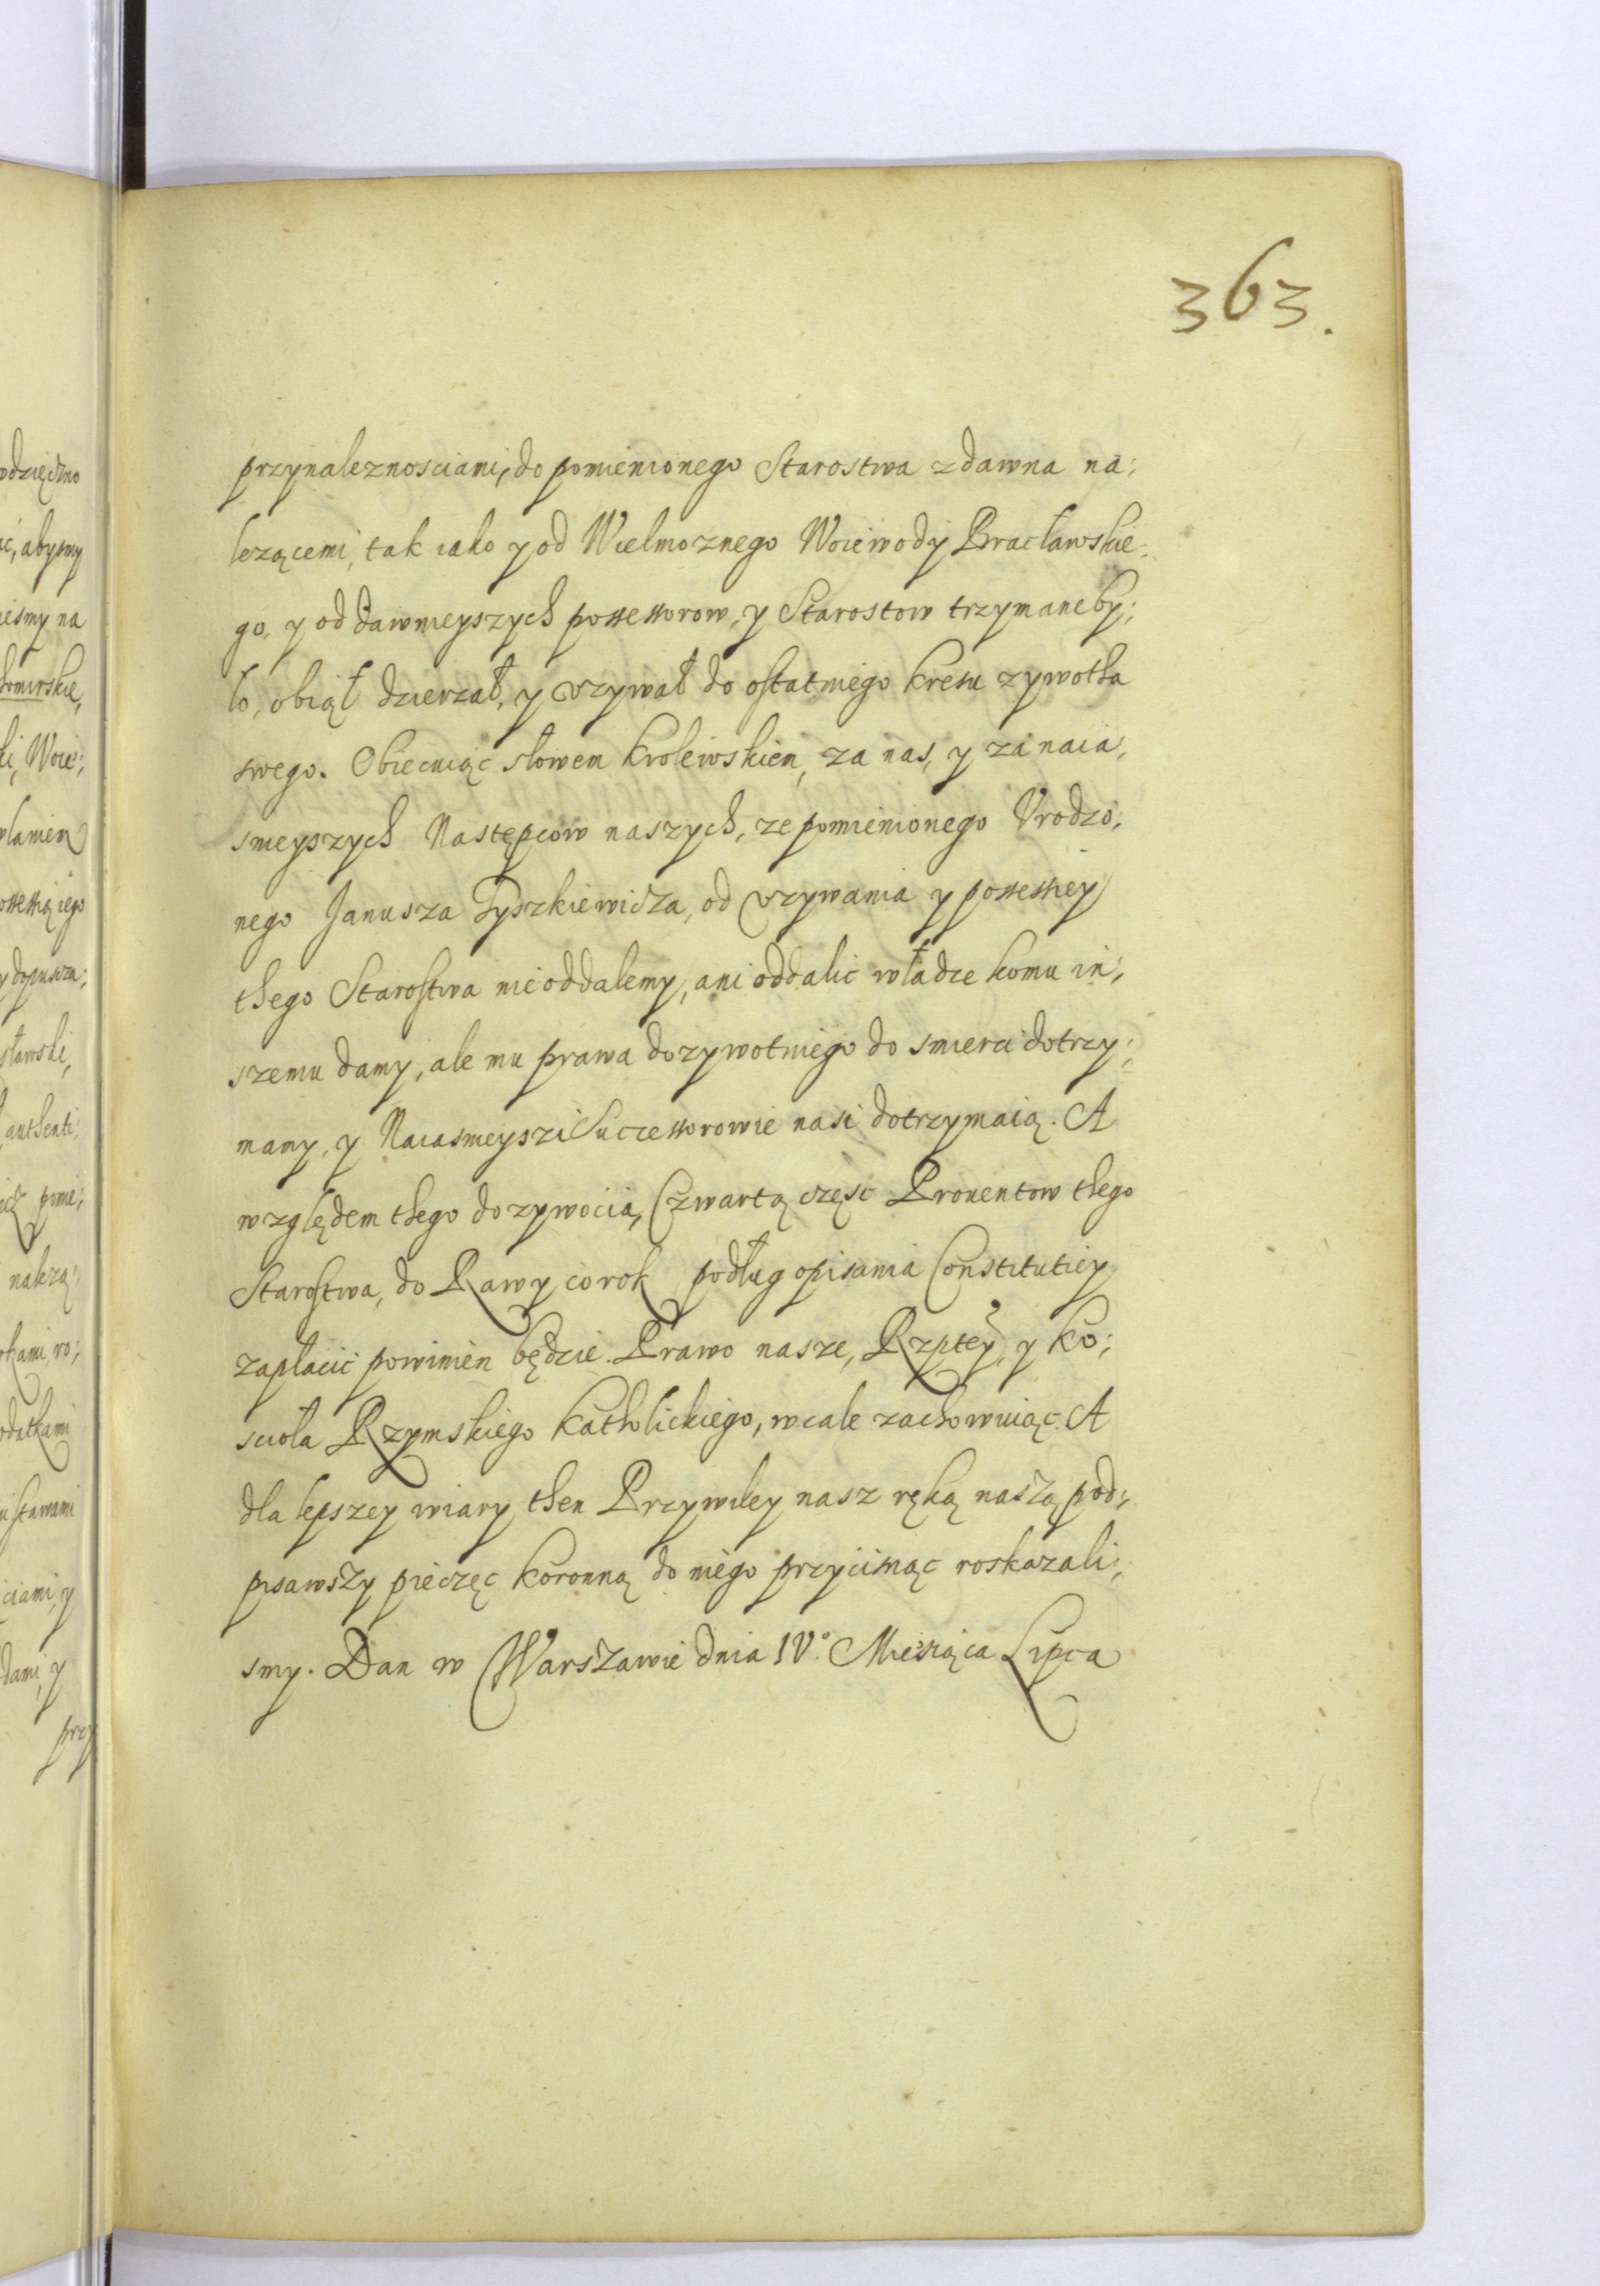 363.
przynaleznosciami, do pomienionego Starostwa zdawna na;
lezącemi, tak iako y od Wielmoznego Woiewody Bracławskie;
go, y od dawnieyszych possessorow, y Starostow trzymane by;
ło, obiął dzierzał, y uzywał do ostatniego kresu zywotha
swego. Obiecuiąc słowem krolewskiem, za nas, y za naia;
snieyszych Następcow naszych, ze pomienionego Urodzo;
nego Janusza Tyszkiewicza, od uzywania y possessiey
thego Starostwa nie oddalemy, ani oddalic władze komu in;
szemu damy, ale mu prawa dozywotniego do smierci dotrzy;
mamy, y Naiasnieyszi Successorowie nasi dotrzymaią. A
względem thego dozywocia, Czwartą częsc Prouentow thego
Starostwa, do Rawy co rok podług opisania Constitutiey
zapłacic powinien będzie. Prawo nasze, Rzptey, y Ko;
scioła Rzymskiego Katholickiego, wcale zachowuiąc. A
dla lepszey wiary then Przywiley nasz ręką naszą pod;
pisawszy pieczęc koronną do niego przycisnąc roskazali;
smy. Dan w Warszawie dnia IV.° Miesiąca Lipca
wdzięczno
abysmy
esmy na
Woie;
possessią iego
authenti;
nalezą;
odatkami
ciami, y
dami, y
prz